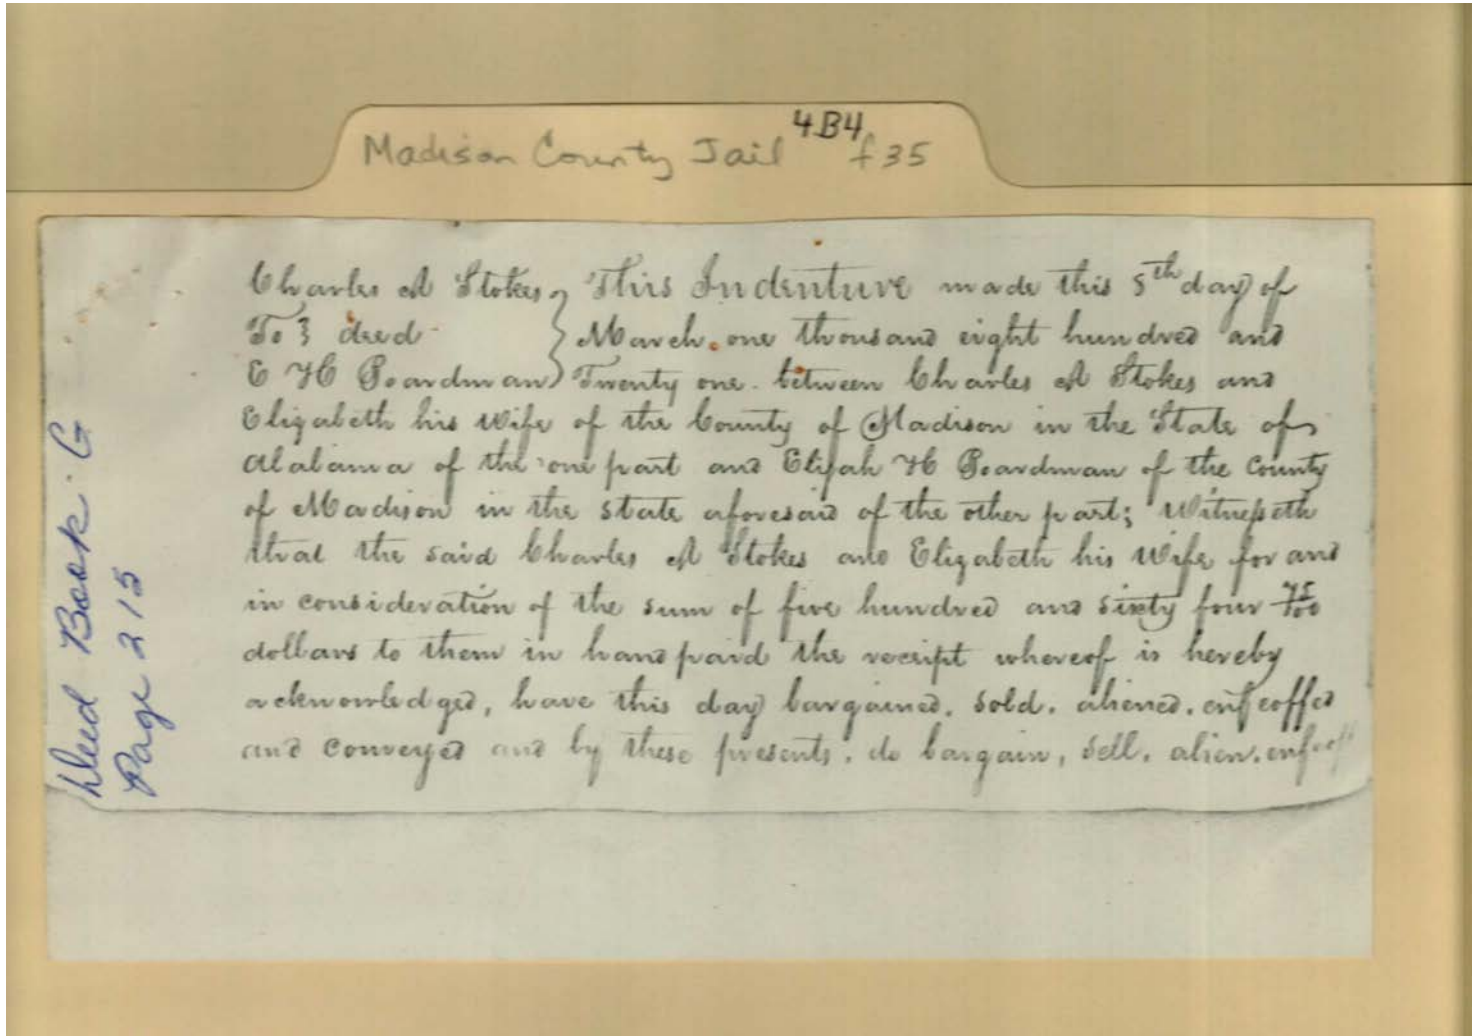 4B4
Madison County Jail f35
Charles A Stokes } This Indenture made this 5th day of
To } deed } March. one thousand eight hundred and
E H Boardman } Twenty one. between Charles A Stokes and
Elizabeth his Wife of the County of Madison in the State of
Alabama of the one part and Elijah H Boardman of the County
of Madison in the State aforesaid of the other part; Witnesseth
that the said Charles A Stokes and Elizabeth his Wife for and
in consideration of the sum of five hundred and sixty four 75/100
dollars to them in hand paid the receipt whereof is hereby
acknowledged, have this day bargained. sold. aliened. enfeoffed
and conveyed and by these presents. do bargain, sell. alien. enfeoff
Deed Book. G
Page 215